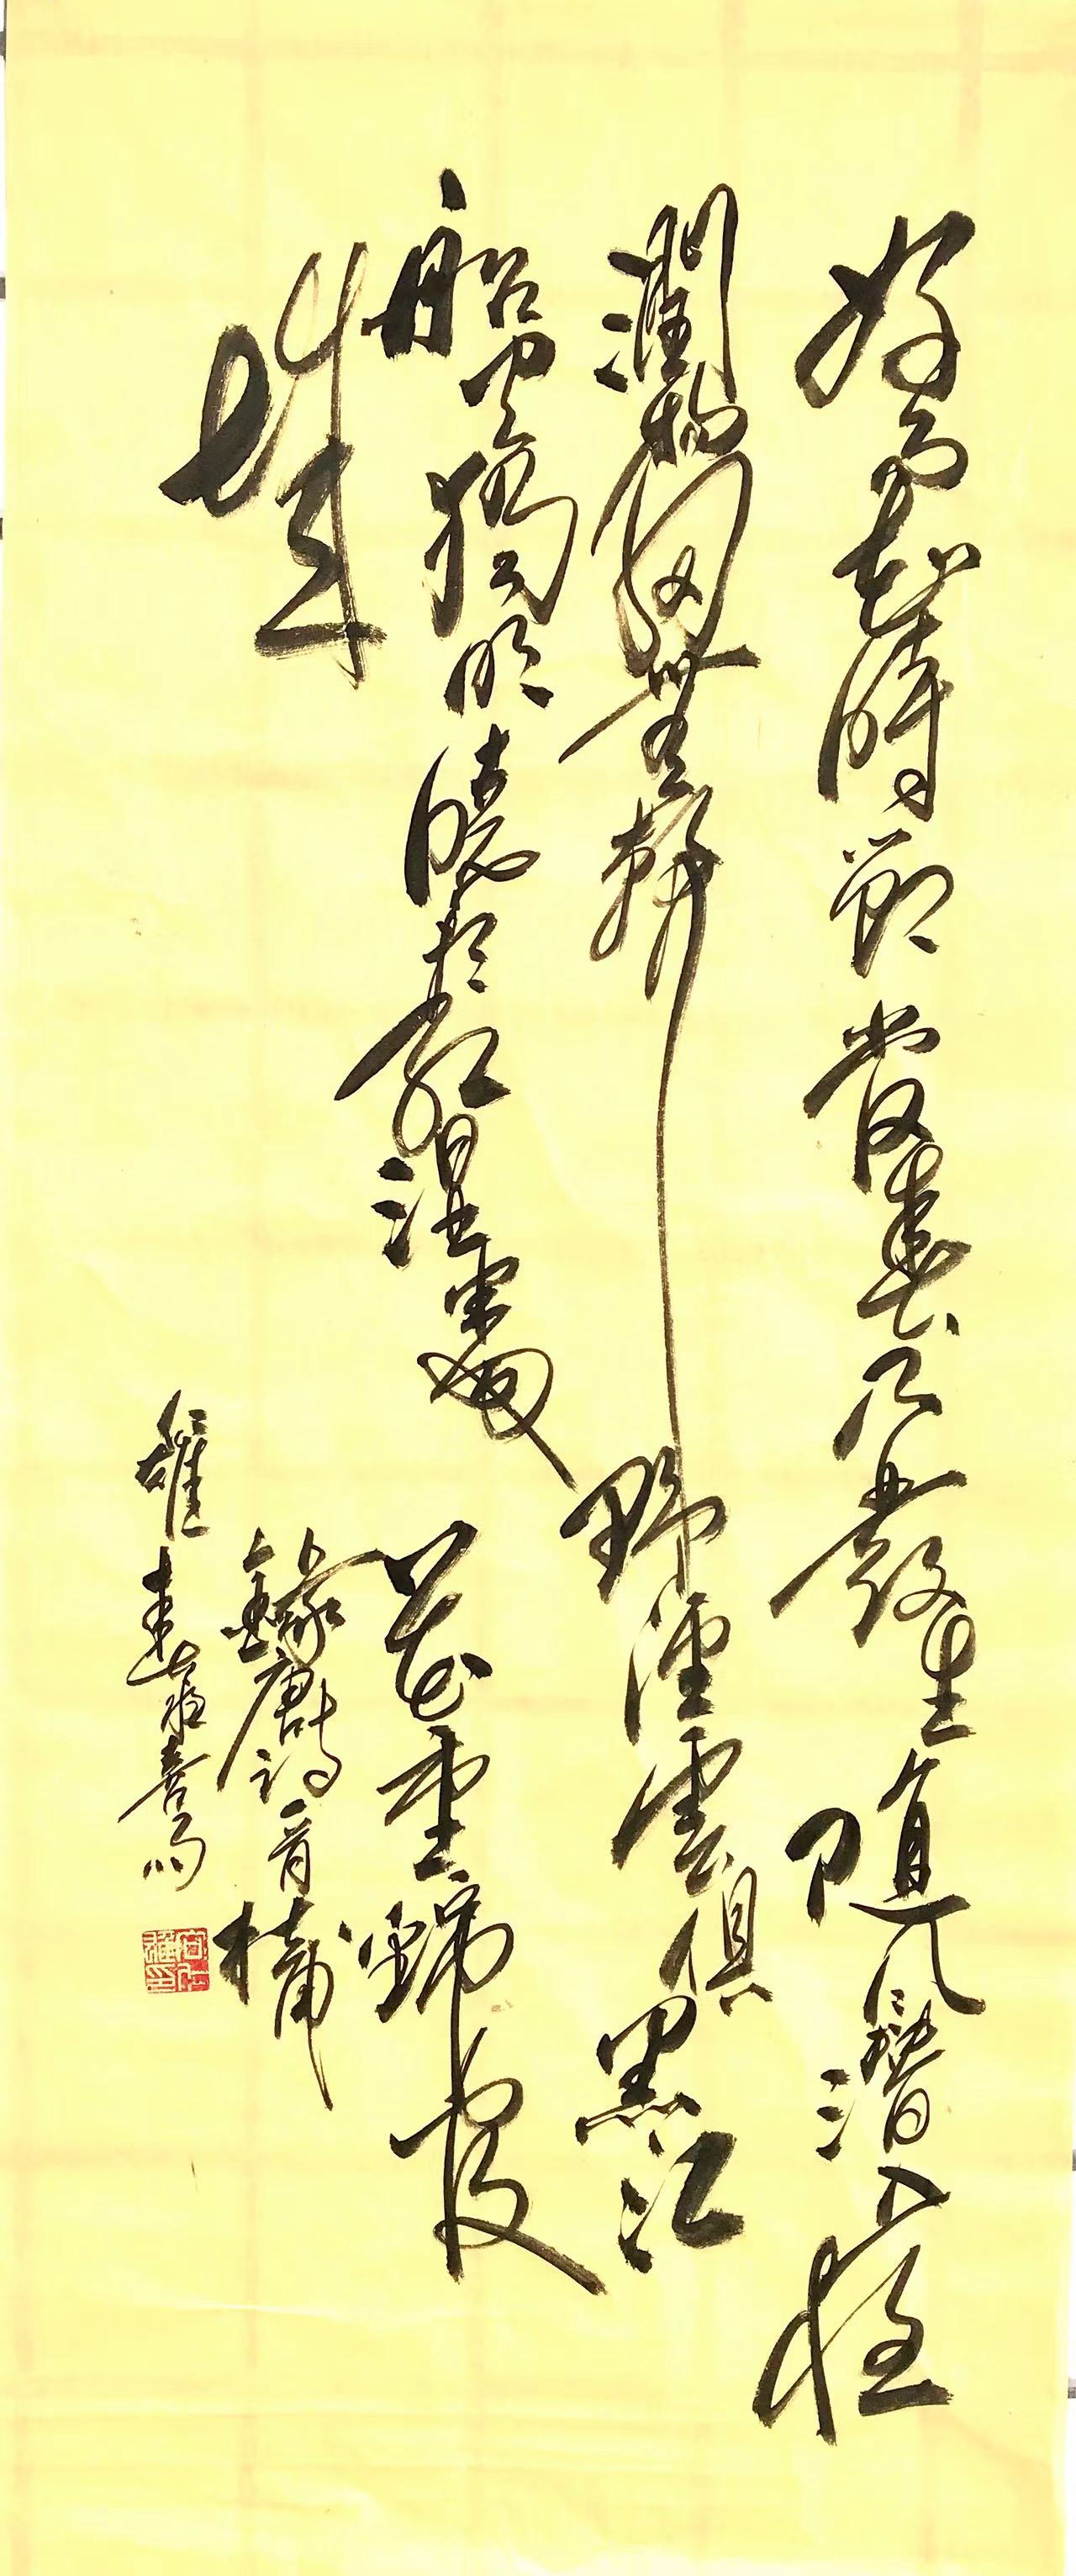 好雨知時節當春乃發生隨風潛入夜
潤物細無聲野徑雲俱黑江
船火獨明曉看紅濕處花重錦官
城
錄唐詩一首杜甫
春夜喜雨